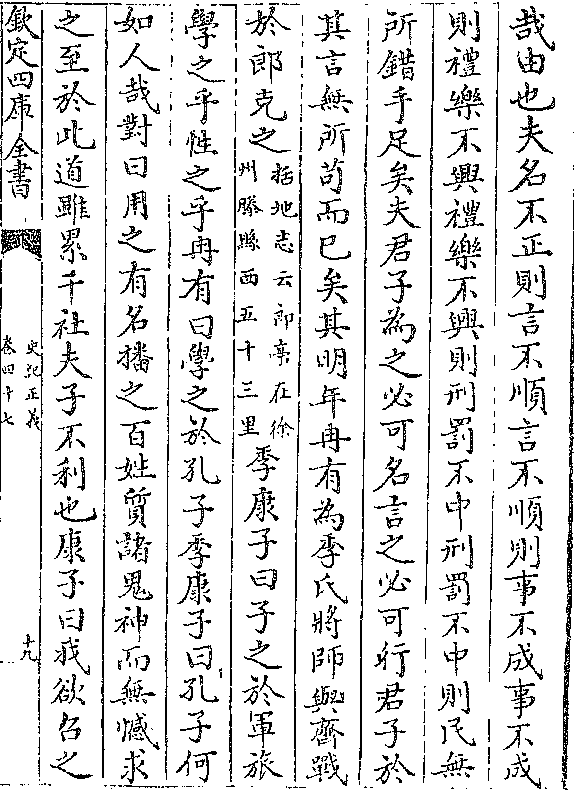 哉由也夫名不正則言不順言不順則事不成事不成
則禮樂不興禮樂不興則刑罰不中刑罰不中則民無
所錯手足矣夫君子為之必可名言之必可行君子於
其言無所苟而已矣其明年冉有為季氏將師與齊戰
於郎克之
括地志云郎亭在徐
州滕縣西五十三里
季康子曰子之於軍旅
學之乎性之乎冉有曰學之於孔子季康子曰孔子何
如人哉對曰用之有名播之百姓質諸鬼神而無憾求
之至於此道雖累千社夫子不利也康子曰我欲召之
欽定四庫全書
史記正義
卷四十七
十九